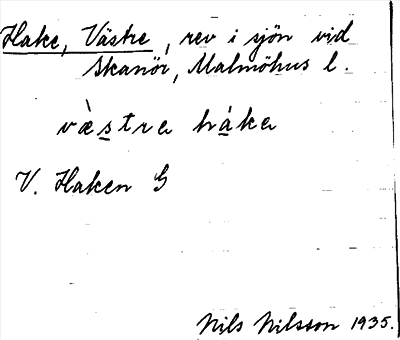 Hake, Västre, rev i sjön vid
Skanör, Malmöhus l.
væ̀stra hàka
V. Haken G
Nils Nilsson 1935.